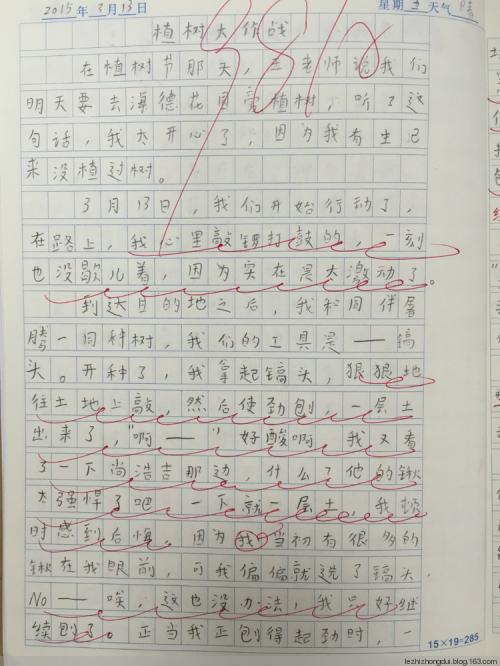 2015年3月13日 星期五 天气晴
植树大作战
在植树节那天，王老师说我们
明天要去海德花园旁植树，听了这
句话，我太开心了，因为我有生已
来没植过树。
3月13日，我们开始行动了，
在路上，我心里敲锣打鼓的，一刻
也没歇儿着，因为实在是太激动了。
到达目的地之后，我和同伴暑
腾一同种树，我们的工具是——镐
头。开种了，我拿起镐头，狠狠地
往土地上敲，然后使劲刨，一层土
出来了，"啊——"好酸啊，我又看
了一下尚浩吉那边，什么？他的锹
太强悍了吧，一下就一层土，我顿
时感到后悔，因为我当初有很多的
锹在我眼前，可我偏偏就选了镐头，
No——唉，这也没办法，我只好继
续刨了。正当我正刨得起劲时，一
15×19=285
lezhizhongdui.blog.163.com